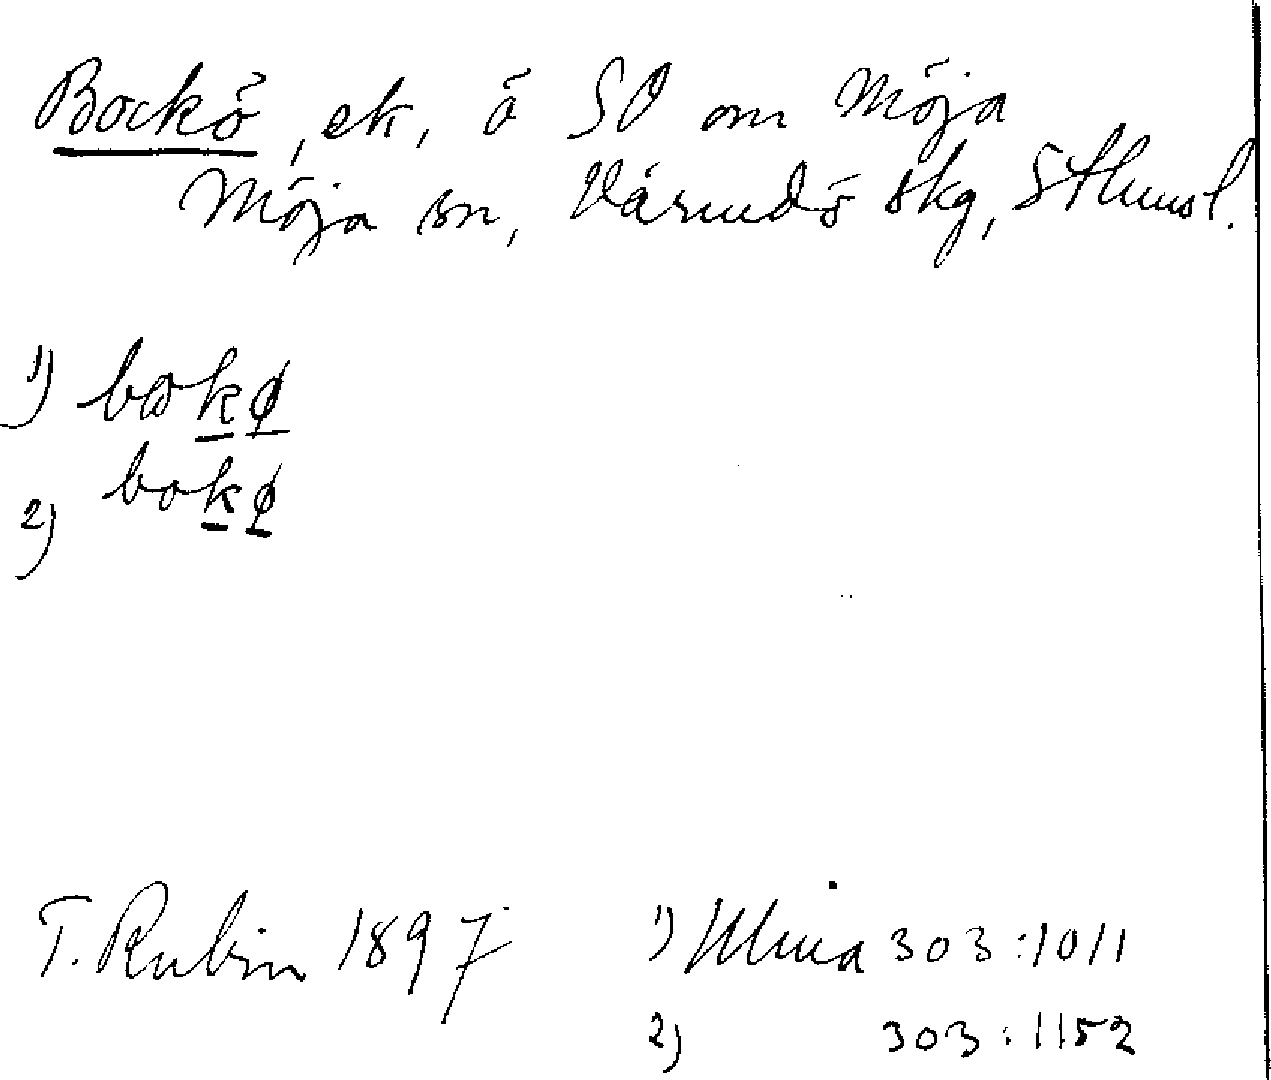 Bockö, ek, ö SO om Möja
Möja sn, Värmdö skg, Sthmsl.
1) bɷkø
2) bokø
T. Rubin 1897
1) Ulma 303:1011
2) 303:1152